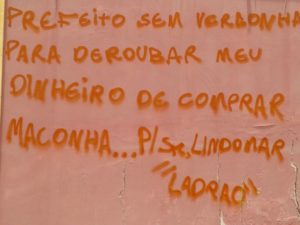 PREFEITO SEM VERGONHA
PARA DEROUBAR MEU
DINHEIRO DE COMPRAR
MACONHA... P/ Sr. LINDOMAR
"LADRAO"